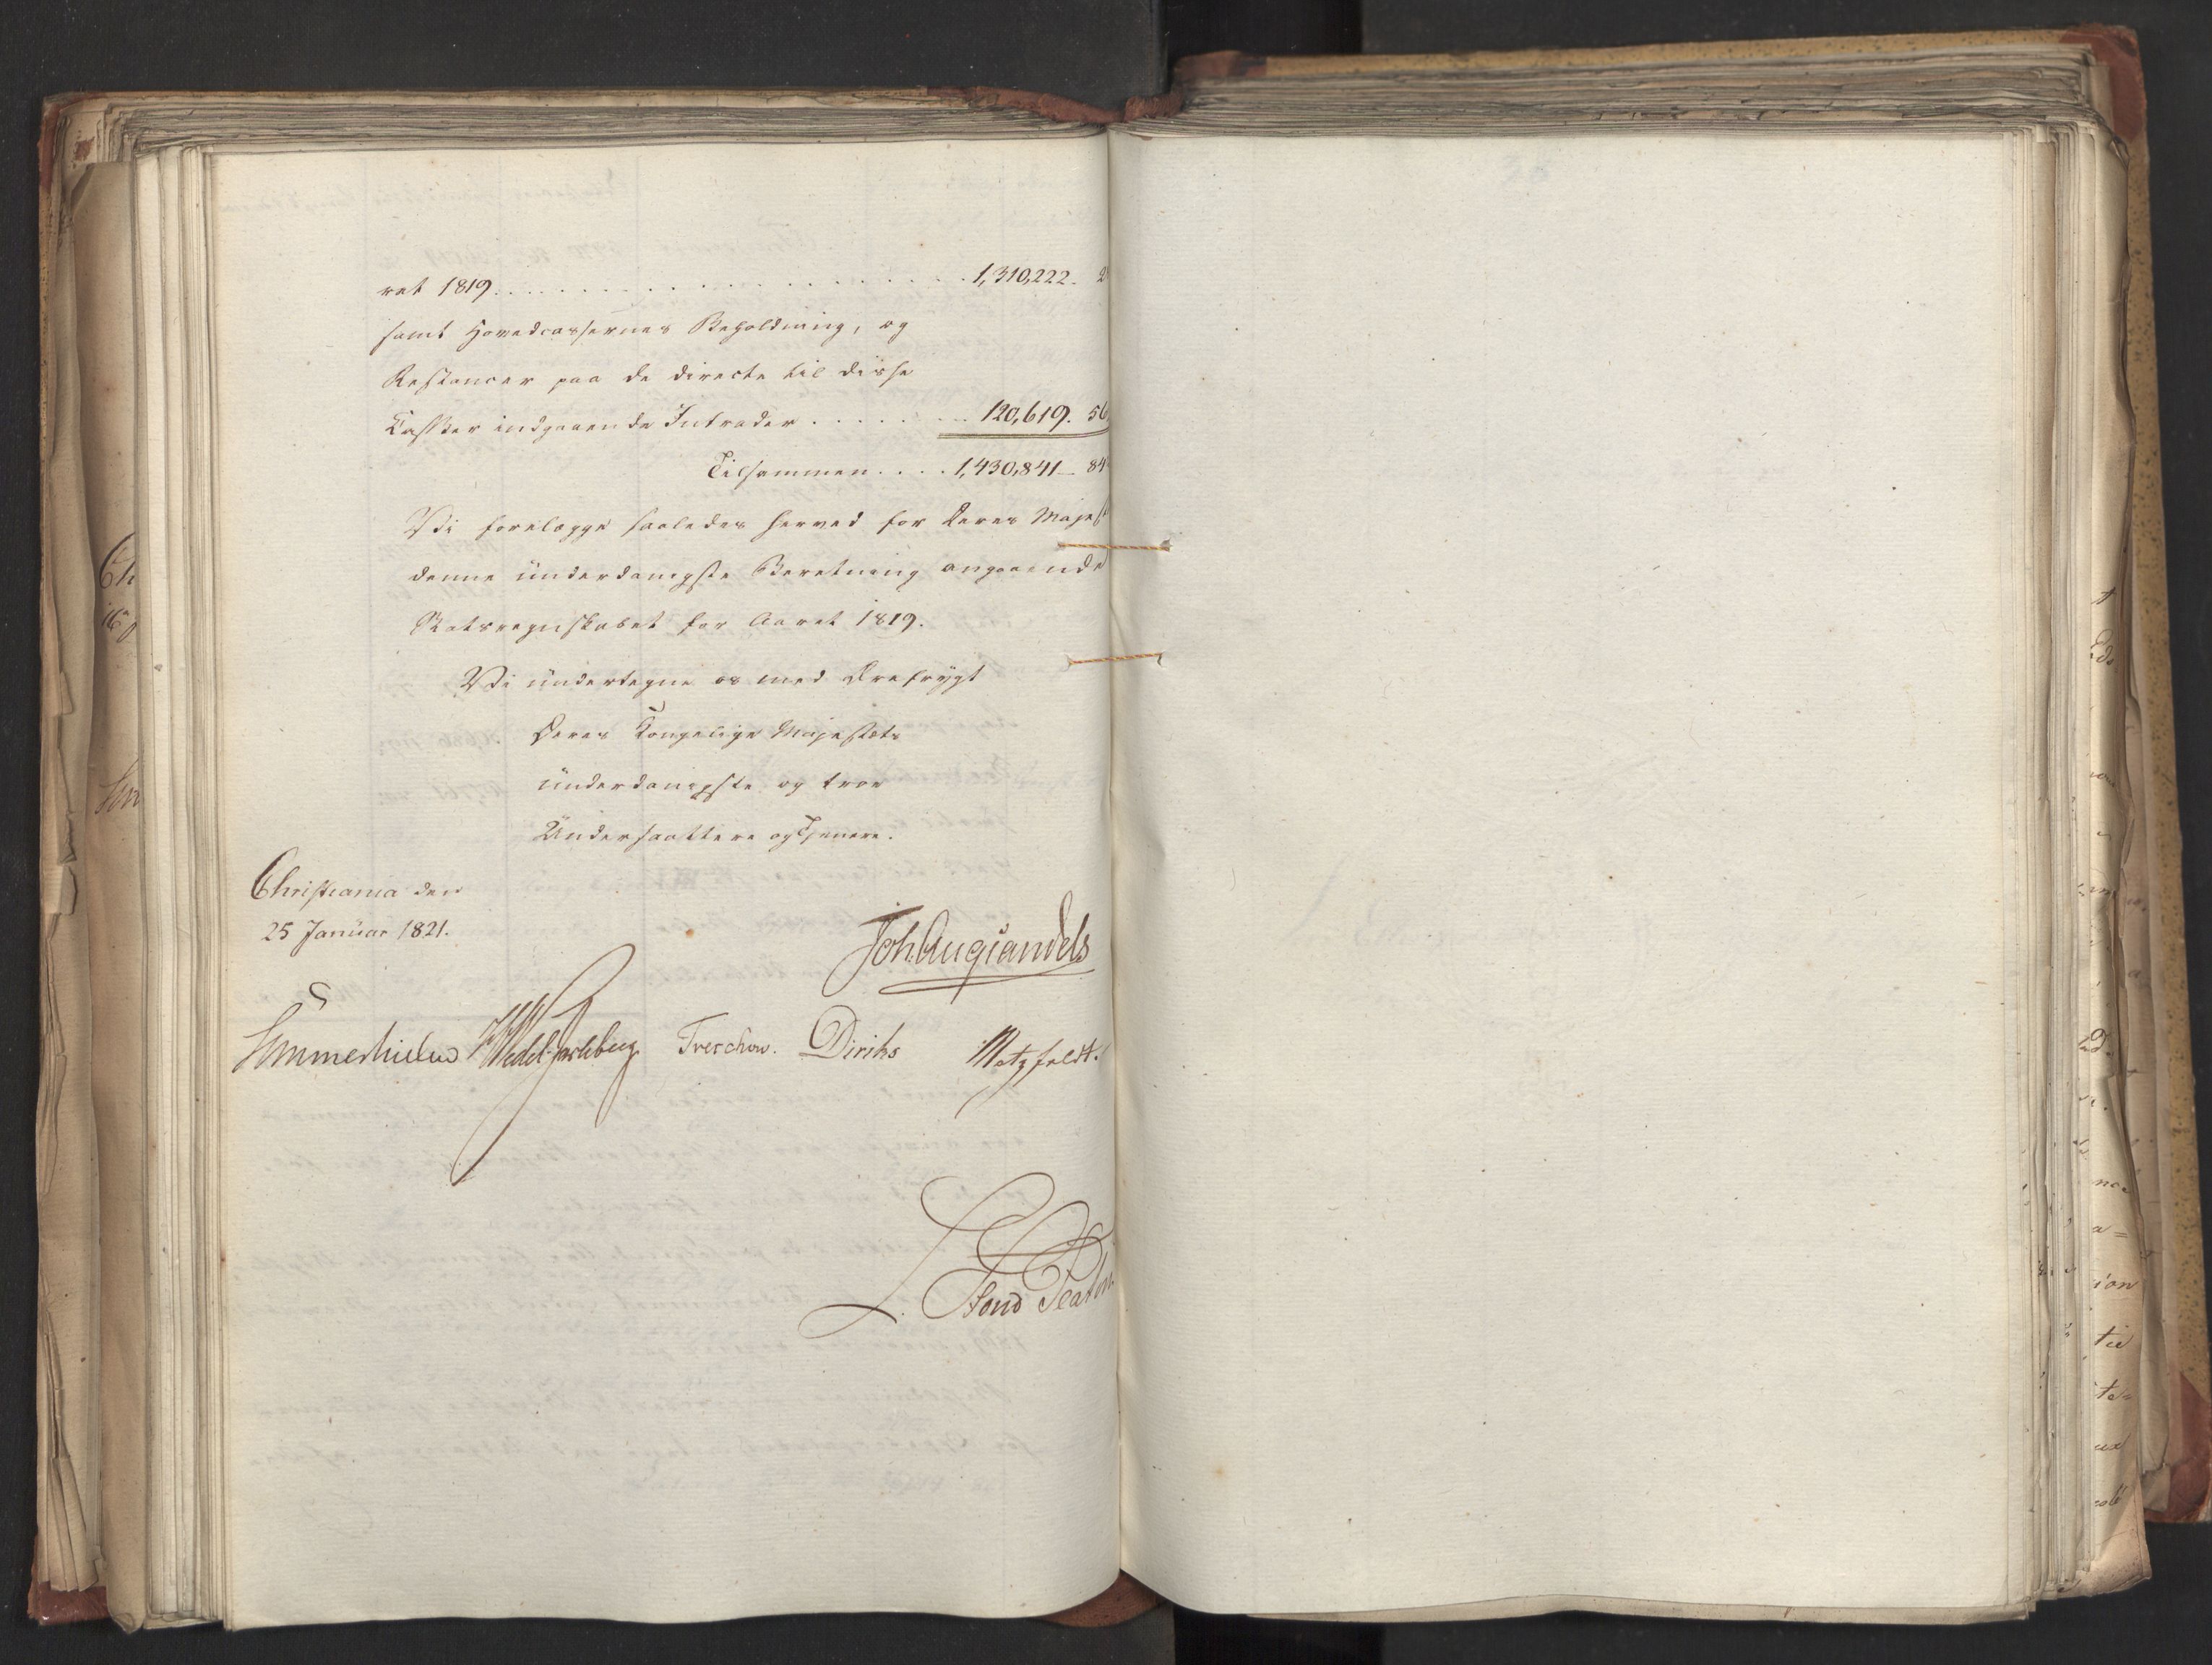 ret 1819. . . . . . . . . . . . . . . . . . . 1,310,222. 2
samt Hovedcassernes Beholdning, og
Restancer paa de directe til disse
Casser indgaaende Intrader . . . . . . . 120,619. 56
Tilsammen. . . . 1,430,841 – 84
Vi forelægge saaledes herved for Deres Majest
denne underdanigste Beretning angaaende
Statsregnskabet for Aaret 1819.
Vi undertegne os med Ærefrygt
Deres Kongelige Majestæts
underdanigste og troe
Undersaattere og Tjenere.
Christiania den
25 Januar 1821.
Joh. Aug Sandels
Sommerhielm Wedel Jarlsberg Treschow. Diriks Motzfeldt.
L. Stoud Platou